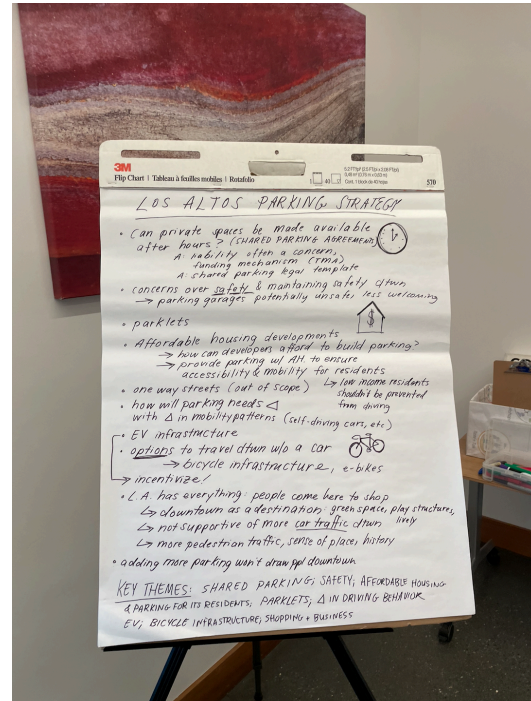 3M
Flip Chart | Tableau à feuilles mobiles | Rotafolio
570
LOS ALTOS PARKING STRATEGY
• Can private spaces be made available
after hours? (SHARED PARKING AGREEMENT)
A: liability often a concern,
funding mechanism (TMA)
A: shared parking legal template
• concerns over safety & maintaining safety dtwn
→ parking garages potentially unsafe, less welcoming
• parklets
$
• Affordable housing developments
→ how can developers afford to build parking?
→ provide parking w/ AH. to ensure
accessibility & mobility for residents
• one way streets (out of scope)
↳ low income residents
shouldn't be prevented
from driving
• how will parking needs Δ
with Δ in mobility patterns (self-driving cars, etc)
• EV infrastructure
• options to travel dtwn w/o a car
→ bicycle infrastructure, e-bikes
→ incentivize!
• L.A. has everything: people come here to shop
↳ downtown as a destination: green space, play structures,
lively
↳ not supportive of more car traffic dtwn
↳ more pedestrian traffic, sense of place, history
• adding more parking won't draw ppl downtown
KEY THEMES: SHARED PARKING; SAFETY; AFFORDABLE HOUSING
& PARKING FOR ITS RESIDENTS; PARKLETS; Δ IN DRIVING BEHAVIOR
EV; BICYCLE INFRASTRUCTURE; SHOPPING + BUSINESS